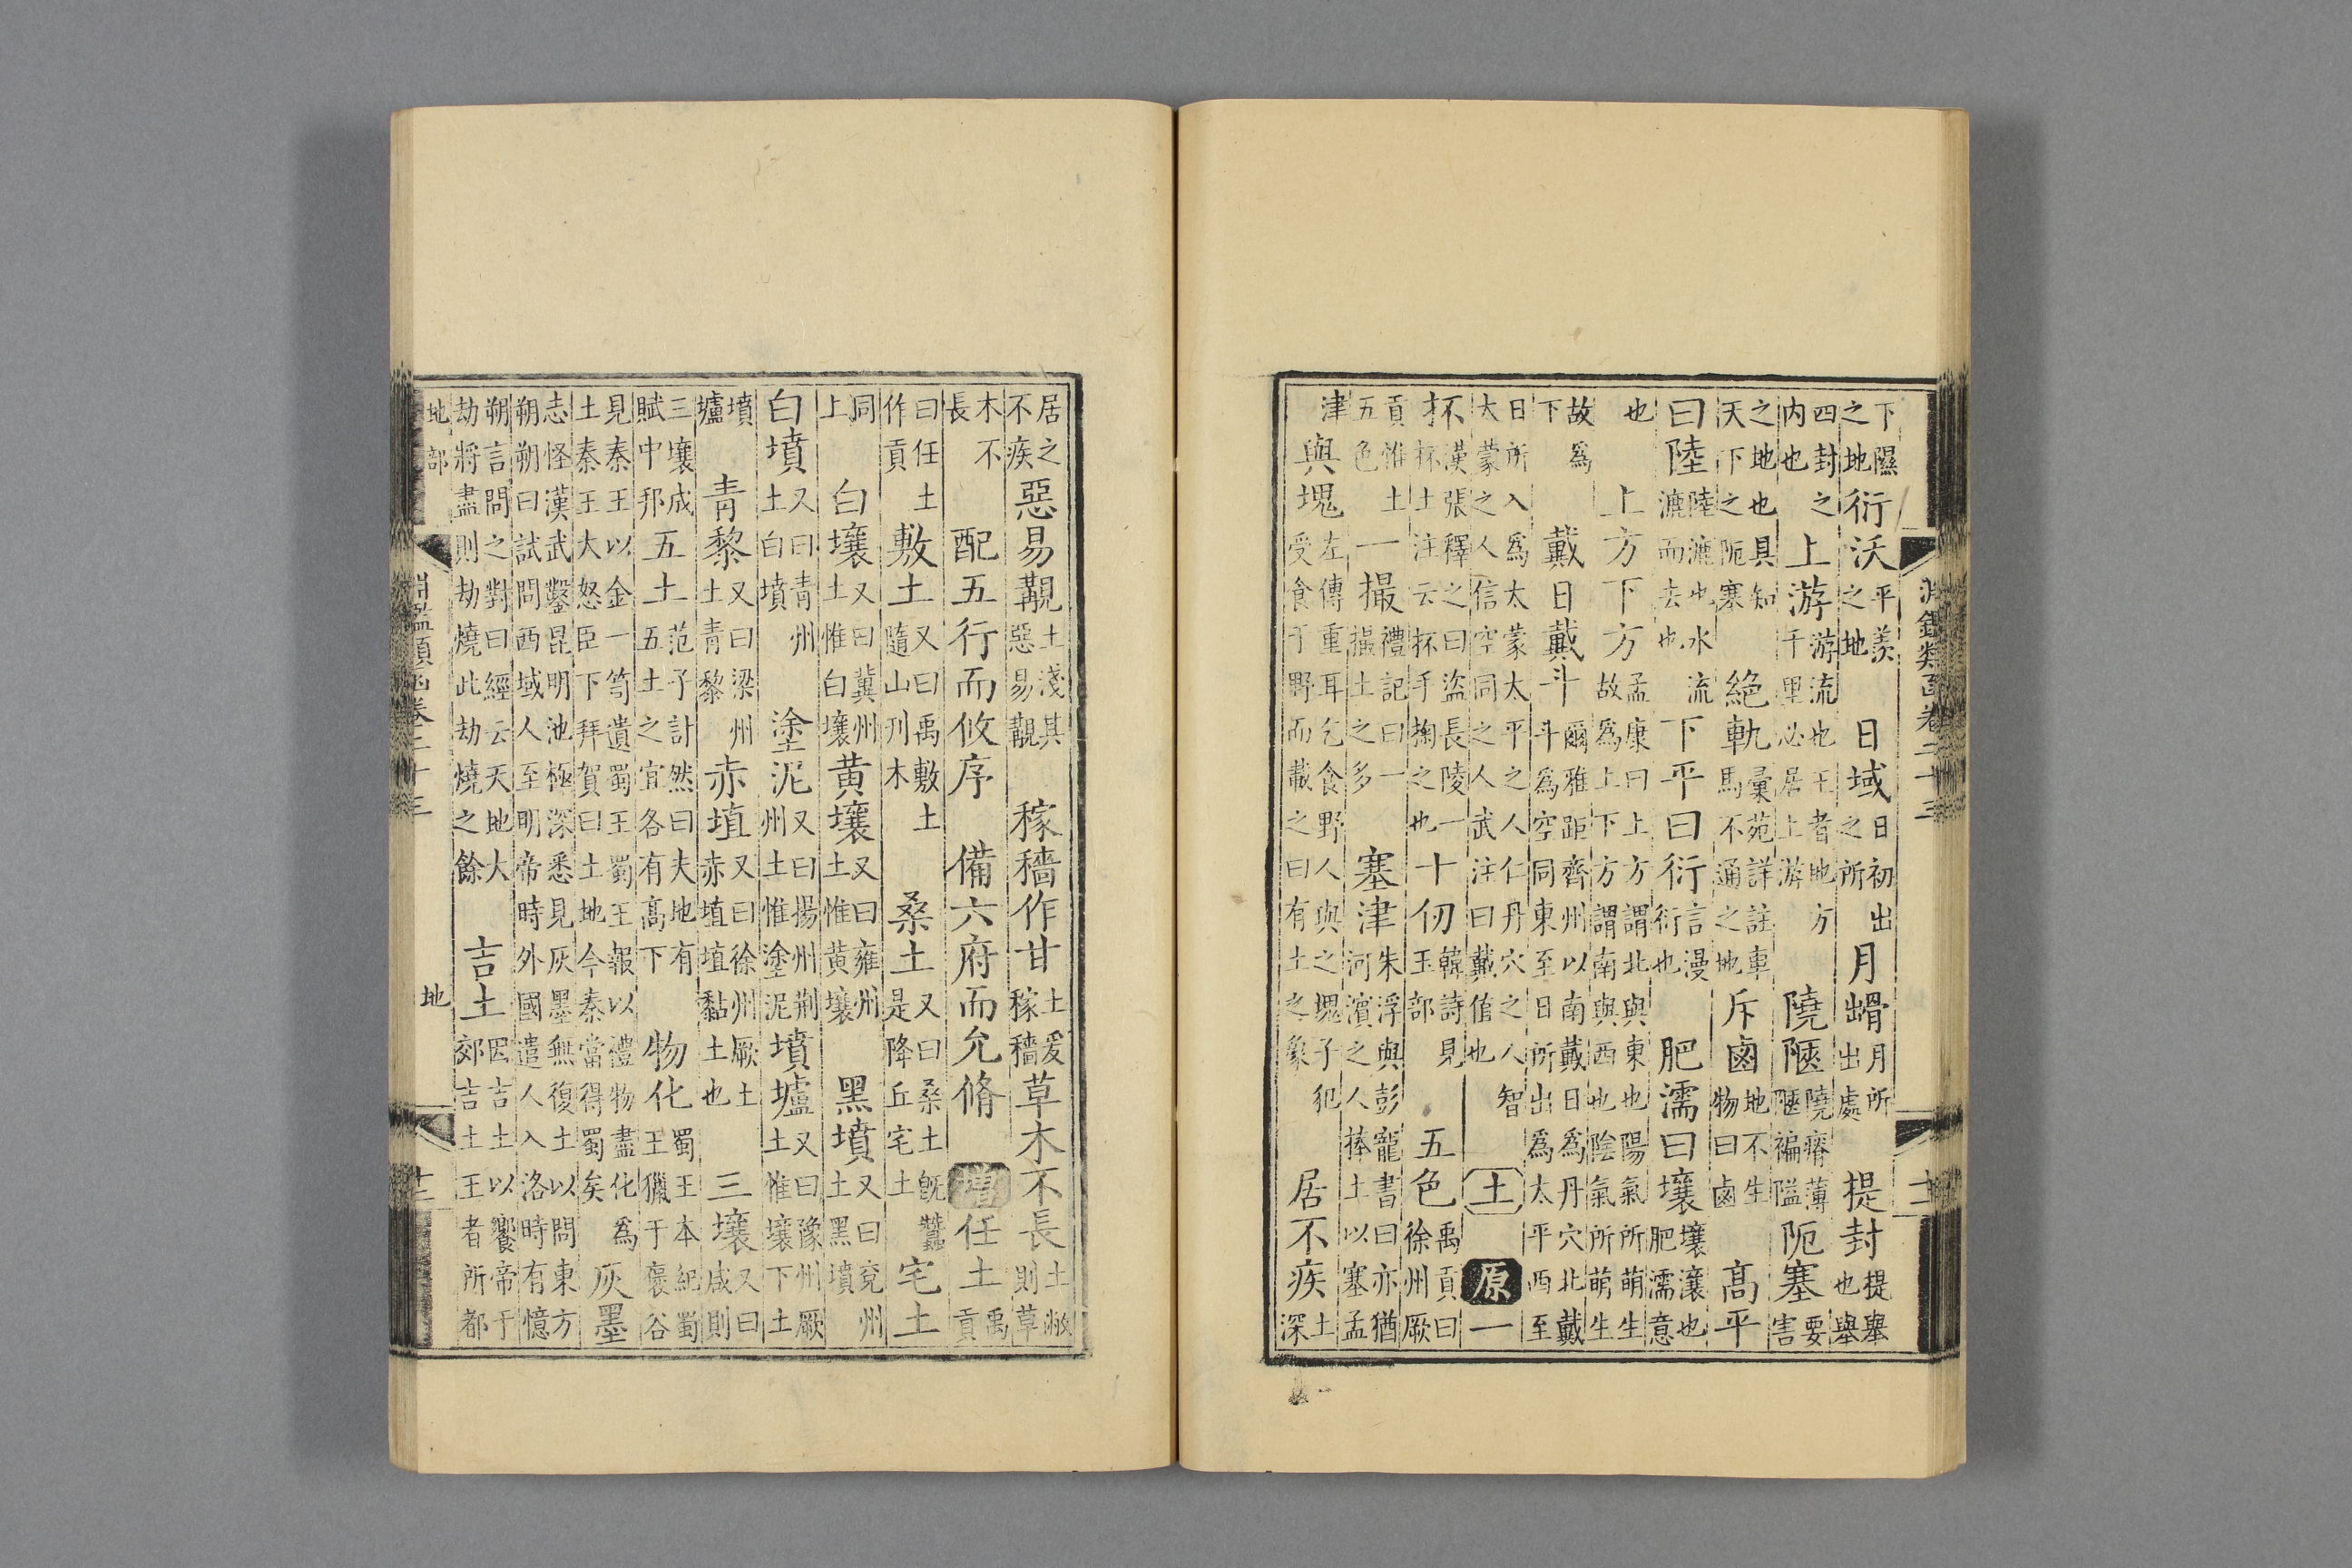 淵鑑類函卷二十三
下隰之地衍沃平羨之地 日域日初出之所月 月所出處 提封提舉也舉
四封之内也 上游游流也王者地方千里必居上游 隢陿隢瘠薄陿褊隘 阨塞要害
之地也具知天下之阨塞 絶軌彙苑詳註車馬不通之地 斥鹵地不生物曰鹵 高平
曰陸陸漉也水流漉而去也 下平曰衍言漫衍也 肥濡曰壤壤瀼也肥濡意
也 上方下方孟康曰上方謂北與東也陽氣所萌生故爲上下方謂南與西也陰氣所萌生
故爲下 戴日戴斗爾雅距齊州以南戴日爲丹穴北戴斗爲空同東至日所出爲太平西至
日所入爲太蒙太平之人仁丹穴之人智大蒙之人信空同之人武注曰戴值也 土 原 一
抔漢張釋之曰盗長陵一抔土注云抔手掬之也 十仞韓詩見玉部 五色禹貢曰徐州厥
貢惟土五色 一撮禮記曰一撮土之多 塞津朱浮與彭龍書曰亦猶河濱之人捧土以塞孟
津 與塊左傳重耳乞食野人與之塊子犯受食于野而載之曰有土之象 居不疾土深
居之不疾 惡易覯土淺其惡易覯 稼穡作甘土爰稼穡 草木不長土敝則草
木不長 配五行而攸序 備六府而允脩 增 任土禹貢
曰任土作貢 敷土又曰禹敷土隨山刋木 桑土又曰桑土旣蠶是降丘宅土 宅土
同上 白壤又曰冀州土惟白壤 黄壤又曰雍州土惟黄壤 黑墳又曰兖州土黑墳
白墳又曰青州土白墳 塗泥又曰揚州荆州土惟塗泥 墳壚又曰豫州厥土惟壤下土
墳壚 青黎又曰梁州土青黎 赤埴又曰徐州厥土赤埴埴黏土也 三壤又曰咸則
三壤成賦中邦 五土又范子計然曰夫地有五土之宜各有高下 物化蜀王本紀蜀王獵于褒谷
見秦王以金一笥遺蜀王蜀王報以禮物盡化爲土秦王大怒臣下拜賀曰土地今秦當得蜀矣 灰墨
志怪漢武鑿昆明池極深悉見灰墨無復土以問東方朔朔曰試問西域人至明帝時外國遣人入洛時有憶
朔言問之對曰經云天地大劫將盡則劫燒此劫燒之餘 吉土因吉土以饗帝于郊吉土王者所都
地部 淵鑑類函卷二十三 地